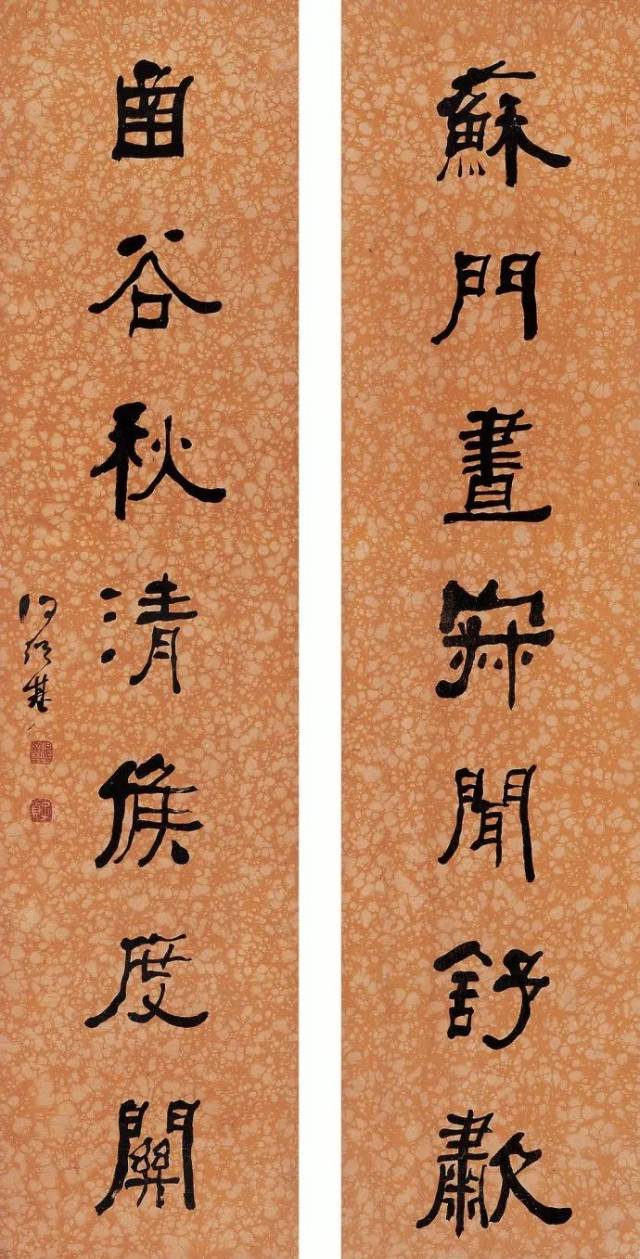 蘇門晝寂聞舒歗
函谷秋清候度關
何紹基